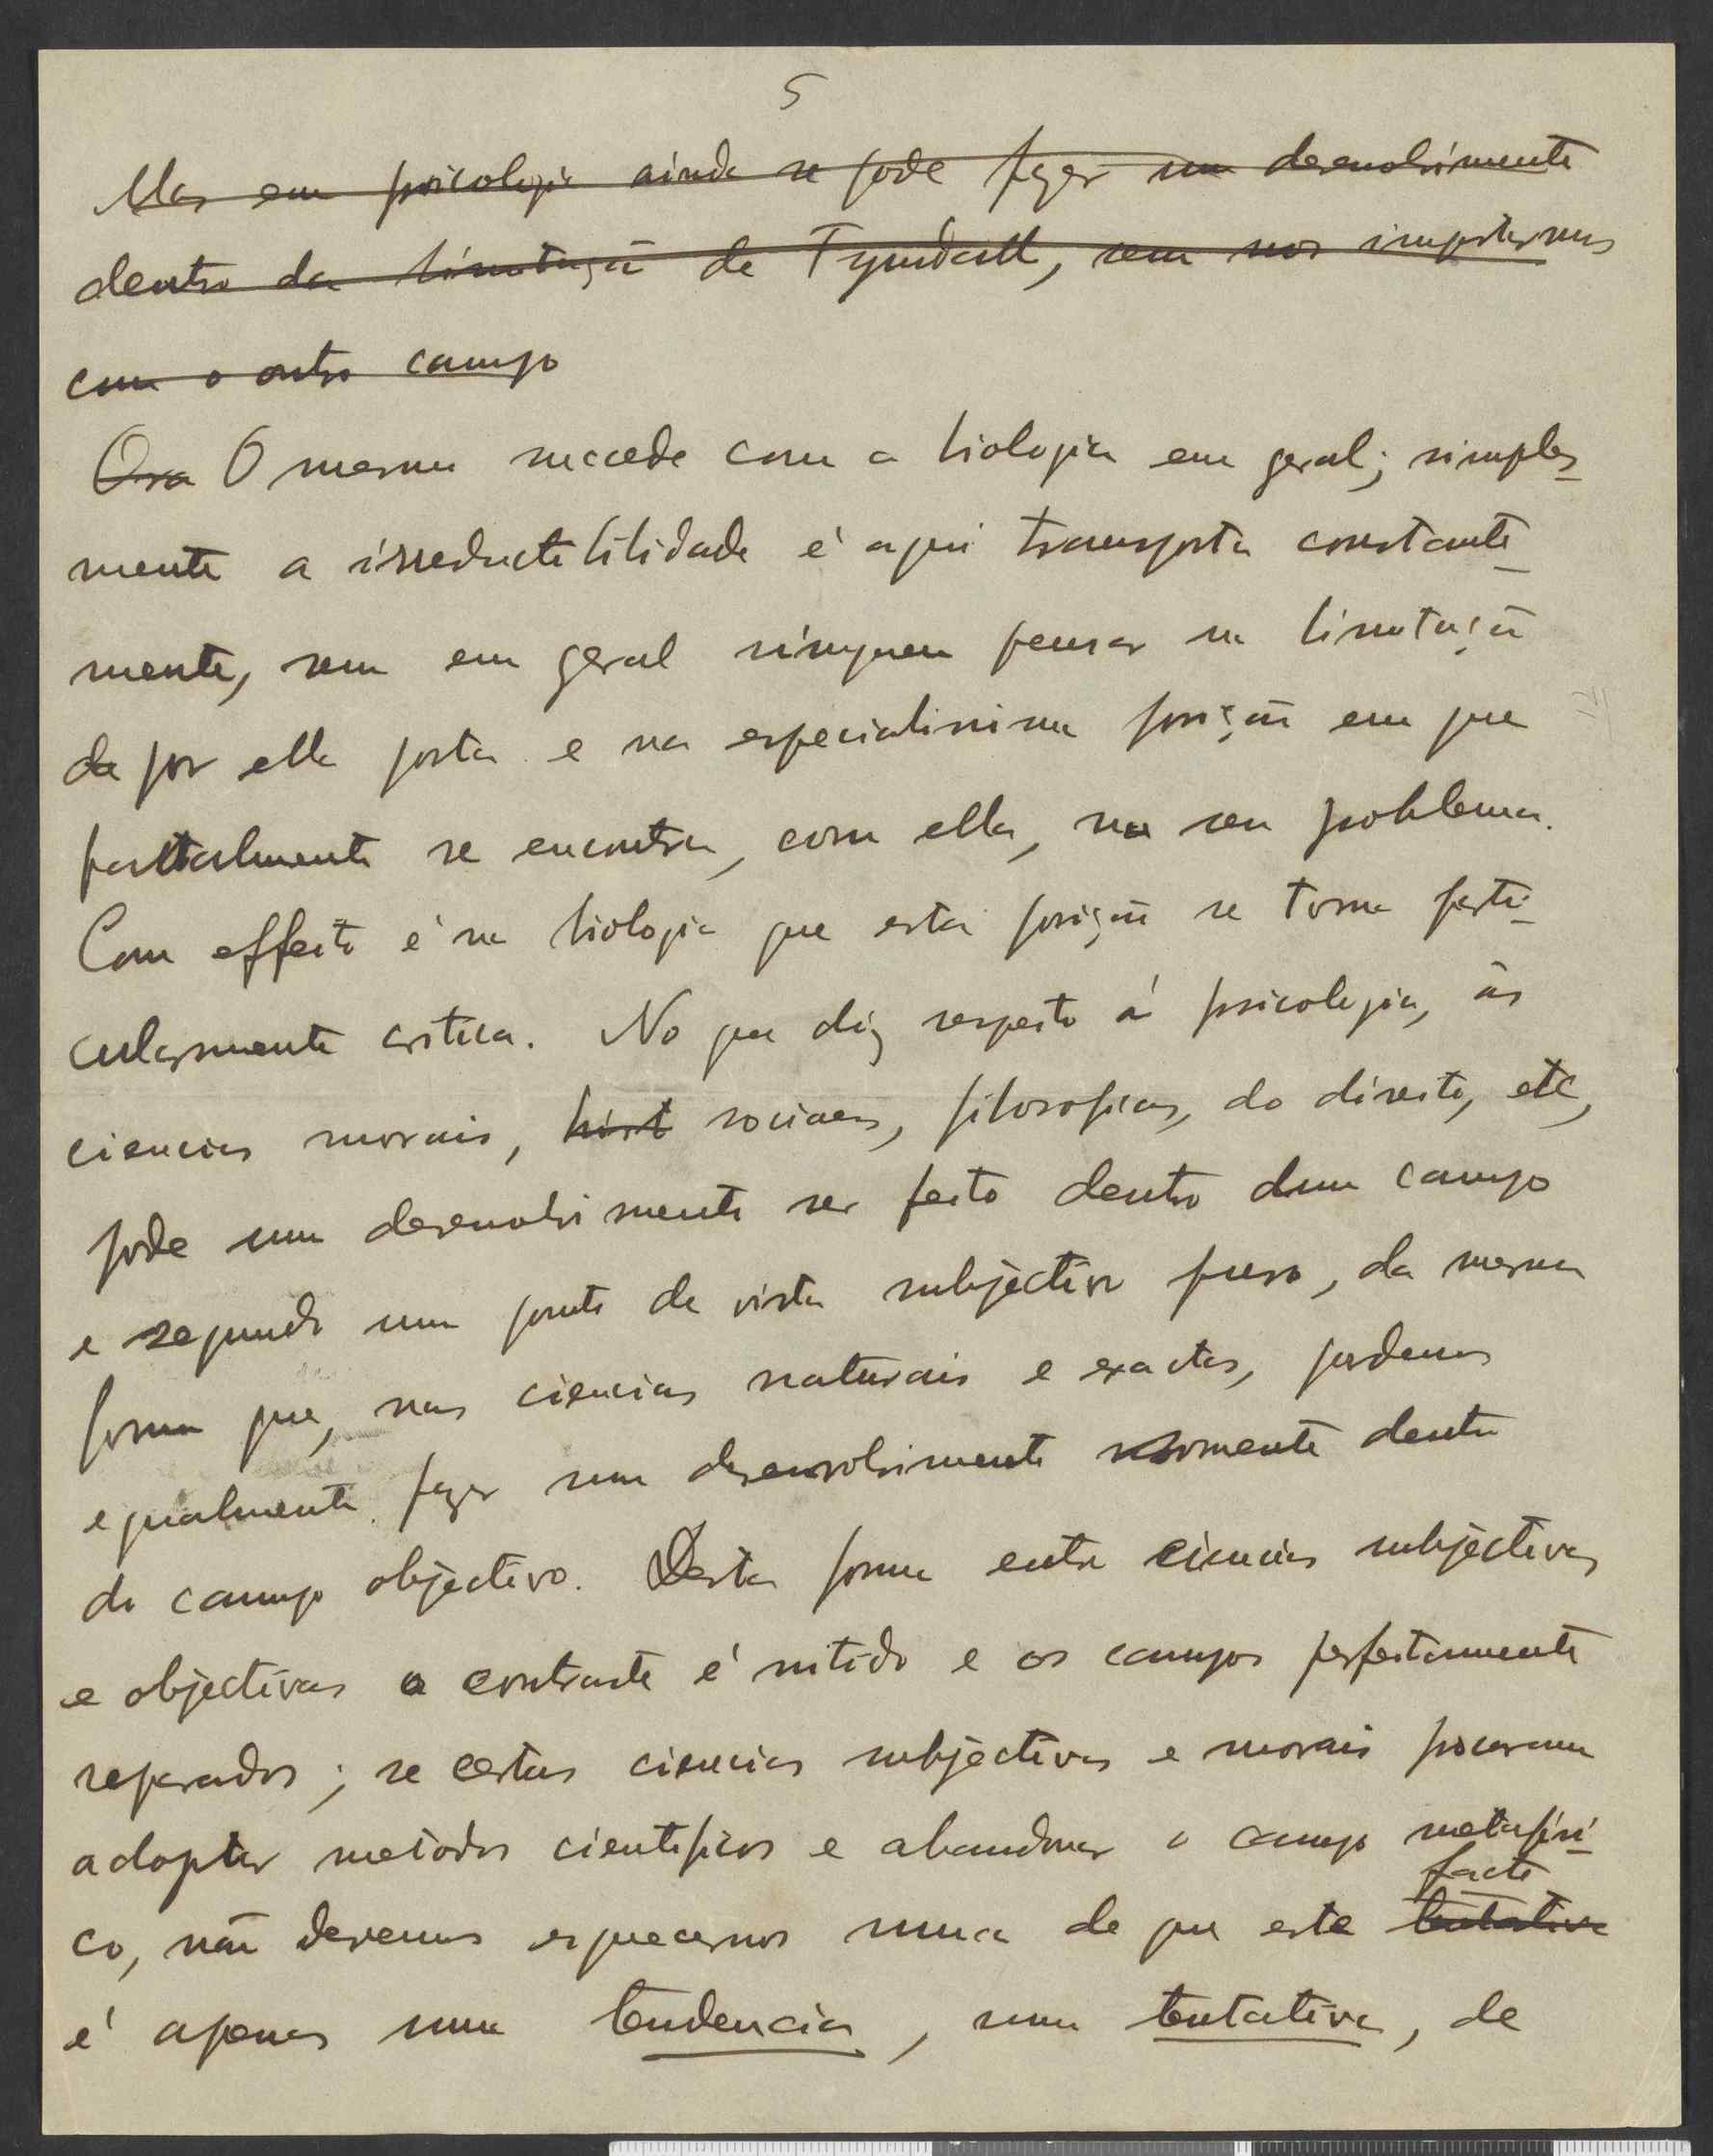 5
Mas em psicologia ainda se pode fazer um desenvolvimento
dentro da limitação de Tyndall, sem nos importarmos
com o outro campo
Ora O mesmo succede com a biologia em geral; simples-
mente a irreductibilidade é aqui transposta constante-
mente, sem em geral ninguem pensar na limitação
da por ella posta e na especialissima posição em que
fatalmente se encontra, com ella, no seu problema.
Com effeito é na biologia que esta posição se torna parti-
cularmente critica. No que diz respeito á psicologia, ás
ciencias morais, hist sociaes, filosoficas, do direito, etc,
pode um desenvolvimento ser feito dentro dum campo
e segundo um ponto de vista subjectivo puro, da mesma
forma que, nas ciencias naturais e exactas, podemos
egualmente fazer um desenvolvimento somente dentro
do campo objectivo. Desta forma entre ciencias subjectivas
e objectivas o contraste é nitido e os campos perfeitamente
separados; se certas ciencias subjectivas e morais procuram
adoptar metodos cientificos e abandonar o campo metafisi-
facto
co, não devemos esquecernos nunca de que este tentativa
é apenas uma tendencia, uma tentativa, de